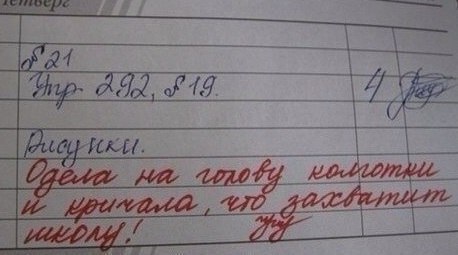 Четверг
§ 21
Упр. 292, § 19. 4
Рисунки.
Одела на голову колготки
и кричала, что захватит
школу!